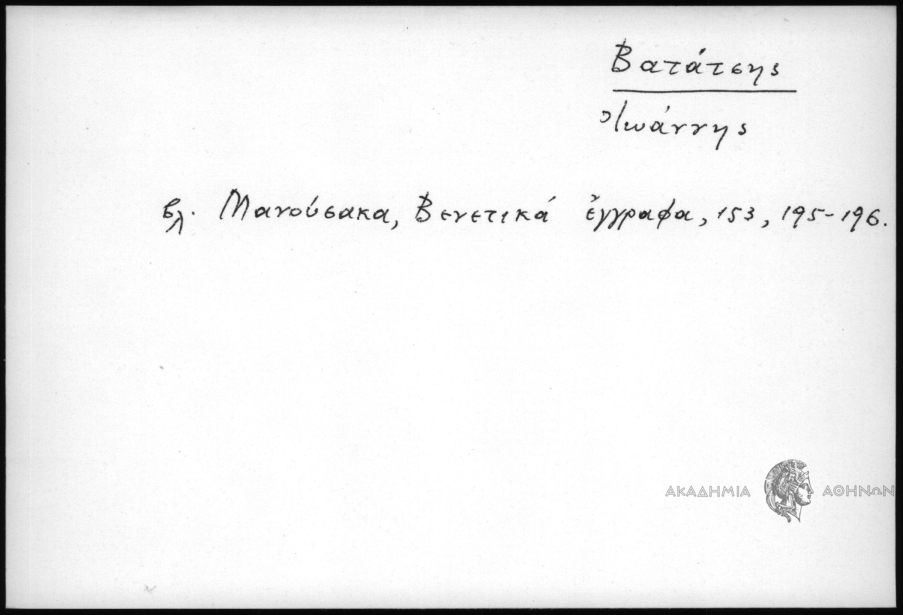 Βατάτσης
Ἰωάννης
βλ. Μανούσακα, Βενετικά ἔγγραφα, 153, 195-196.
ΑΚΑΔΗΜΙΑ ΑΘΗΝΩΝ